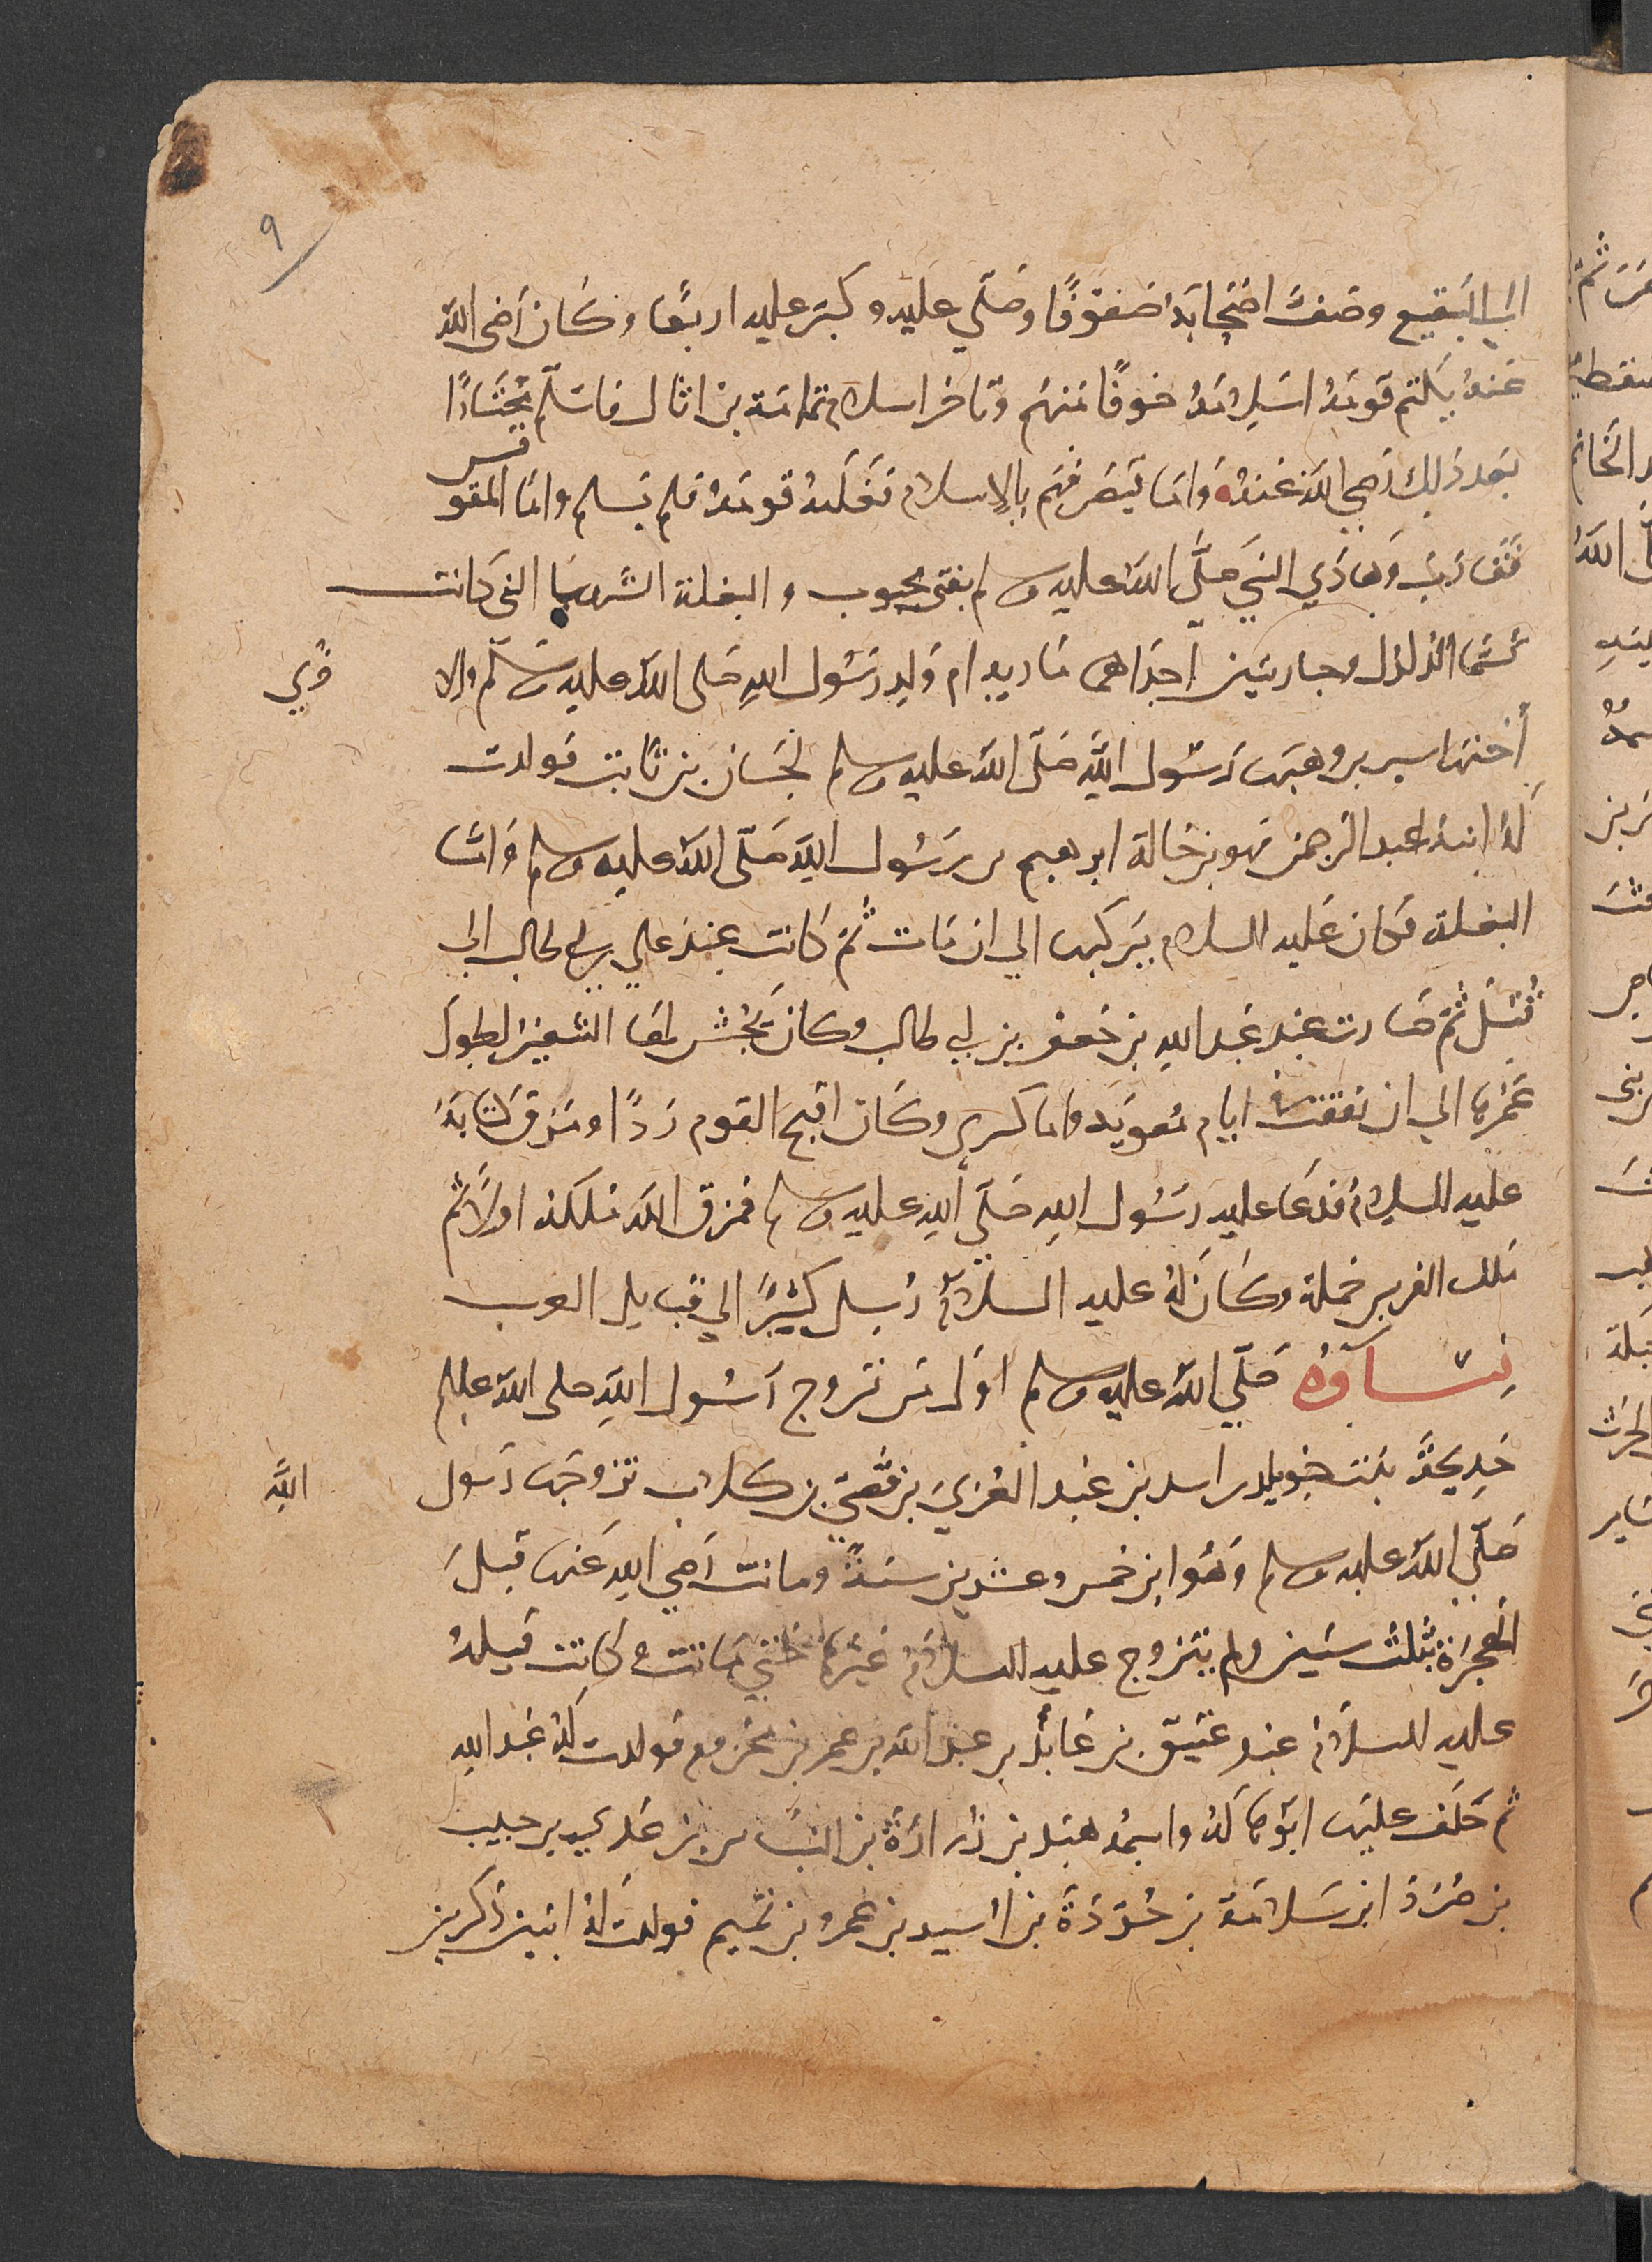 ٩
الى البقيع وصف اصحابه صفوفًا وصلى عليه وكبر عليه اربعًا وكان رضى الله
عنه يكتم قومه اسلامه خوفًا منهم وتاخر اسلام ثمامة بن اثال فاسلم مختارًا
بعد ذلك رضي الله عنه واما قيصر فهم بالاسلام فغلبه قومه فلم يسلم واما المقوقس
فقارب وهادي النبي صلى الله عليه وسلم بفتى مجبوب والبغلة الشهبا التي كانت
تسما الدلدل وجاريتين احداهما مارية ام ولد رسول الله صلى الله عليه وسلم والاخري
أختها سيرين وهبها رسول الله صلى الله عليه وسلم لحسان بن ثابت فولدت
له ابنه عبد الرحمن فهو بن خالة ابرهيم بن رسول الله صلى الله عليه وسلم واما
البغلة فكان عليه السلام يركبها الي ان مات ثم كانت عند علي بن ابي طالب الى ان
قتل ثم صارت عند عبد الله بن جعفر بن ابي طالب وكان يجش لها الشعير لطول
عمرها الي ان نفقت في ايام معوية واما كسرى وكان اقبح القوم ردًا ومزق كتابه
عليه السلام فدعا عليه رسول الله صلى الله عليه وسلم فمزق الله ملكه اولًا ثم
ملك الفرس جملة وكان له عليه السلام رسل كثيرًا الي قبايل العرب
نساؤه صلى الله عليه وسلم اول من تزوج رسول الله صلى الله عليه وسلم
خديجة بنت خويلد بن اسد بن عبد العزي بن قصي بن كلاب تزوجها رسول الله
صلى الله عليه وسلم وهو ابن خمس وعشرين سنة وماتت رضي الله عنها قبل
الهجرة بثلث سنين ولم يتزوج عليه السلام غيرها حتي ماتت وكانت قبله
عليه السلام عند عتيق بن عابد بن عبد الله بن عمر بن مخزوم فولدت له عبد الله
ثم خلف عليها ابو هالة واسمه هند بن زرارة بن النباس بن عدي بن حبيب
بن صرد ابن سلامة بن جردة بن اسيد بن عمرو بن تميم فولدت له ابنين ذكرين